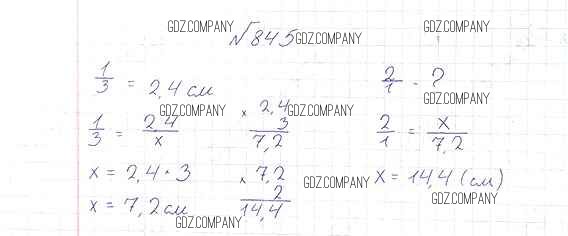 GDZ.COMPANY GDZ.COMPANY
№845 GDZ.COMPANY
1/3 = 2,4 см
2/1 - ?
GDZ.COMPANY
GDZ.COMPANY GDZ.COMPANY
1/3 = 2,4/x
× 2,4
3
7,2
2/1 = x/7,2
x = 2,4 · 3
× 7,2
2
14,4
GDZ.COMPANY
x = 14,4 (см)
GDZ.COMPANY
x = 7,2 см
GDZ.COMPANY